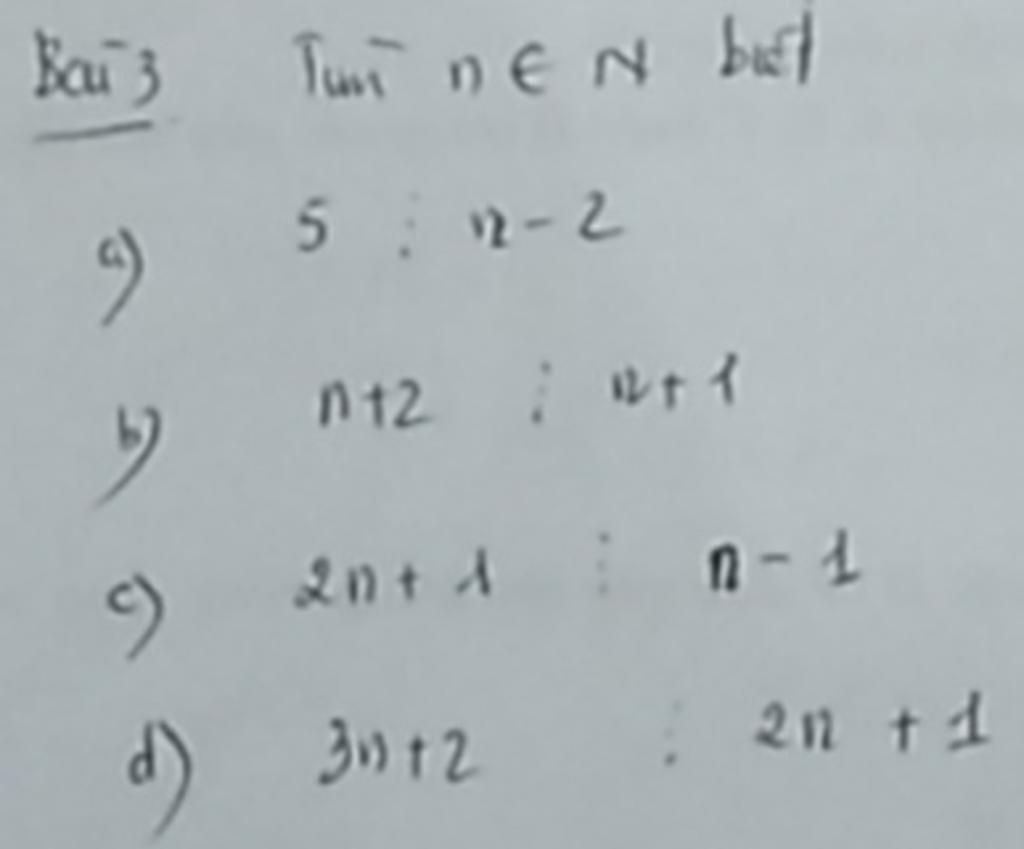 Bài 3 Tìm n ∈ N biết
a) 5 ⋮ n - 2
b) n+2 ⋮ n+1
c) 2n+1 ⋮ n-1
d) 3n+2 ⋮ 2n+1